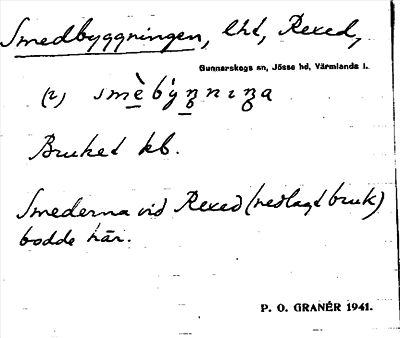 Smedbyggningen, lht, Rexed,
Gunnarskogs sn, Jösse hd, Värmlands l.
Bruket kb.
Smederna vid Rexed (nedlagt bruk)
bodde här.
P. O. GRANÉR 1941.